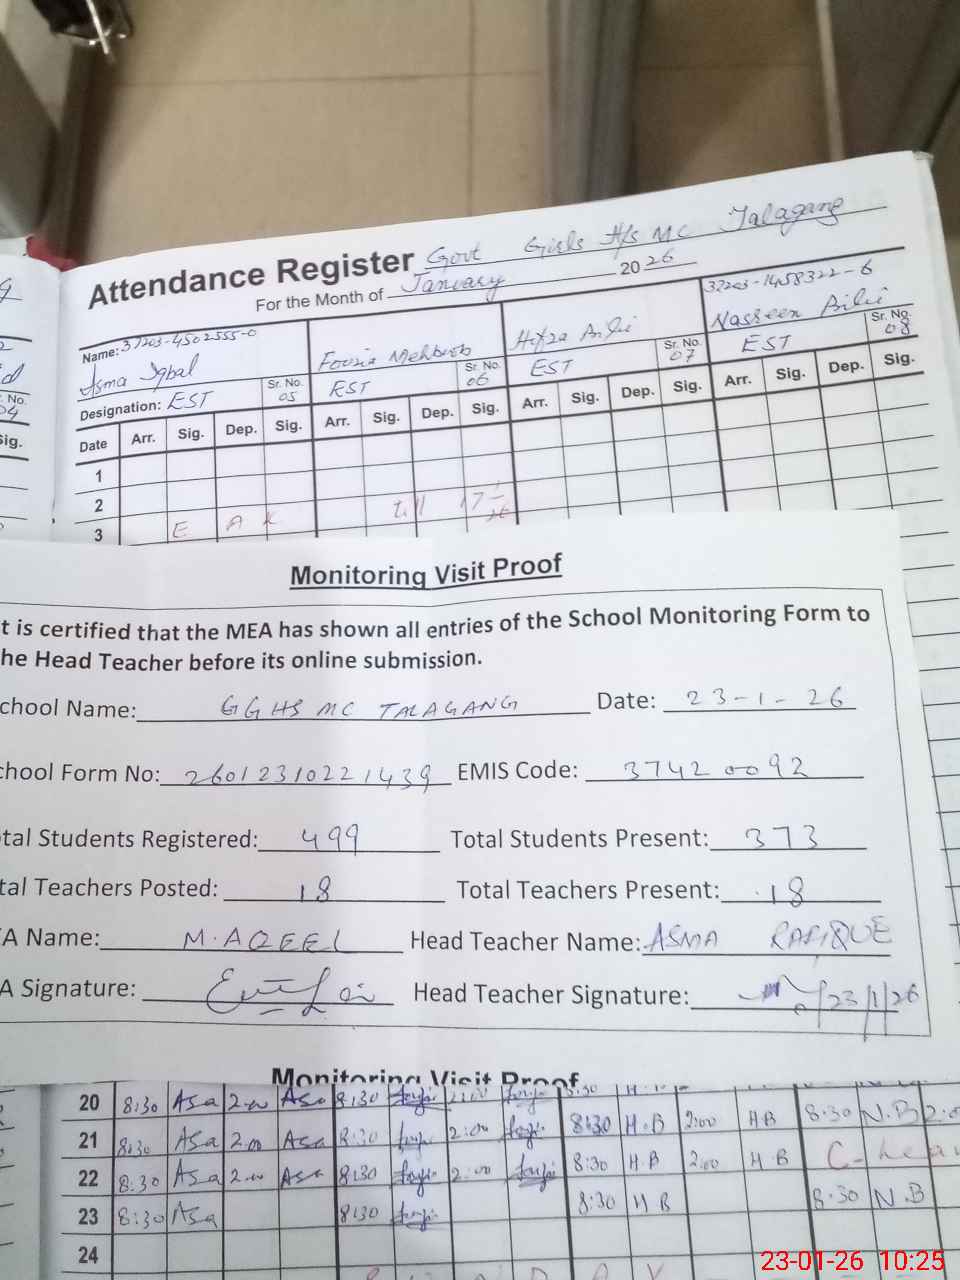 Attendance Register Govt Girls H/s MC Talagang
For the Month of January 2026
Name: 37203-4502555-0
37203-1458322-6
Asma Iqbal Fouzia Mehboob Hifza Bibi Nasreen Bibi
Designation: EST Sr. No. 05 EST Sr. No. 06 EST Sr. No. 07 EST Sr. No. 08
Date Arr. Sig. Dep. Sig. Arr. Sig. Dep. Sig. Arr. Sig. Dep. Sig. Arr. Sig. Dep. Sig.
1
2
3 E A K till 17-1-26
Monitoring Visit Proof
t is certified that the MEA has shown all entries of the School Monitoring Form to
he Head Teacher before its online submission.
chool Name: GGHS MC TALAGANG Date: 23-1-26
chool Form No: 26012310221439 EMIS Code: 37420092
tal Students Registered: 499 Total Students Present: 373
tal Teachers Posted: 18 Total Teachers Present: 18
A Name: M. AQEEL Head Teacher Name: ASMA RAFIQUE
A Signature: Head Teacher Signature: 23/1/26
Monitoring Visit Proof
20 8:30 Asa 2:00 Asa 8:30 2:00 8:30
21 8:30 Asa 2:00 Asa 8:30 2:00 8:30 H.B 2:00 H B 8:30 N.B 2:0
22 8:30 Asa 2:00 Asa 8:30 2:00 8:30 H.B 2:00 H.B C-Leav
23 8:30 Asa 8:30 8:30 H B 8:30 N.B
24
23-01-26 10:25